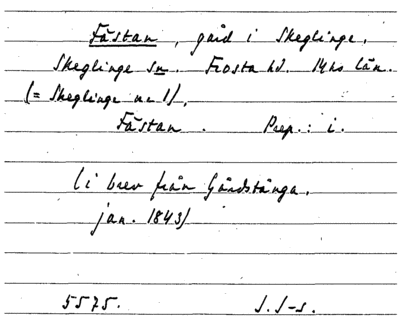 Fästan, gård i Skeglinge,
Skeglinge sn. Frosta hd. Mhs län.
(= Skeglinge nr 1).
Fästan. Prep.: i.
(i brev från Gårdstånga,
jan. 1843)
5575. S.S-s.